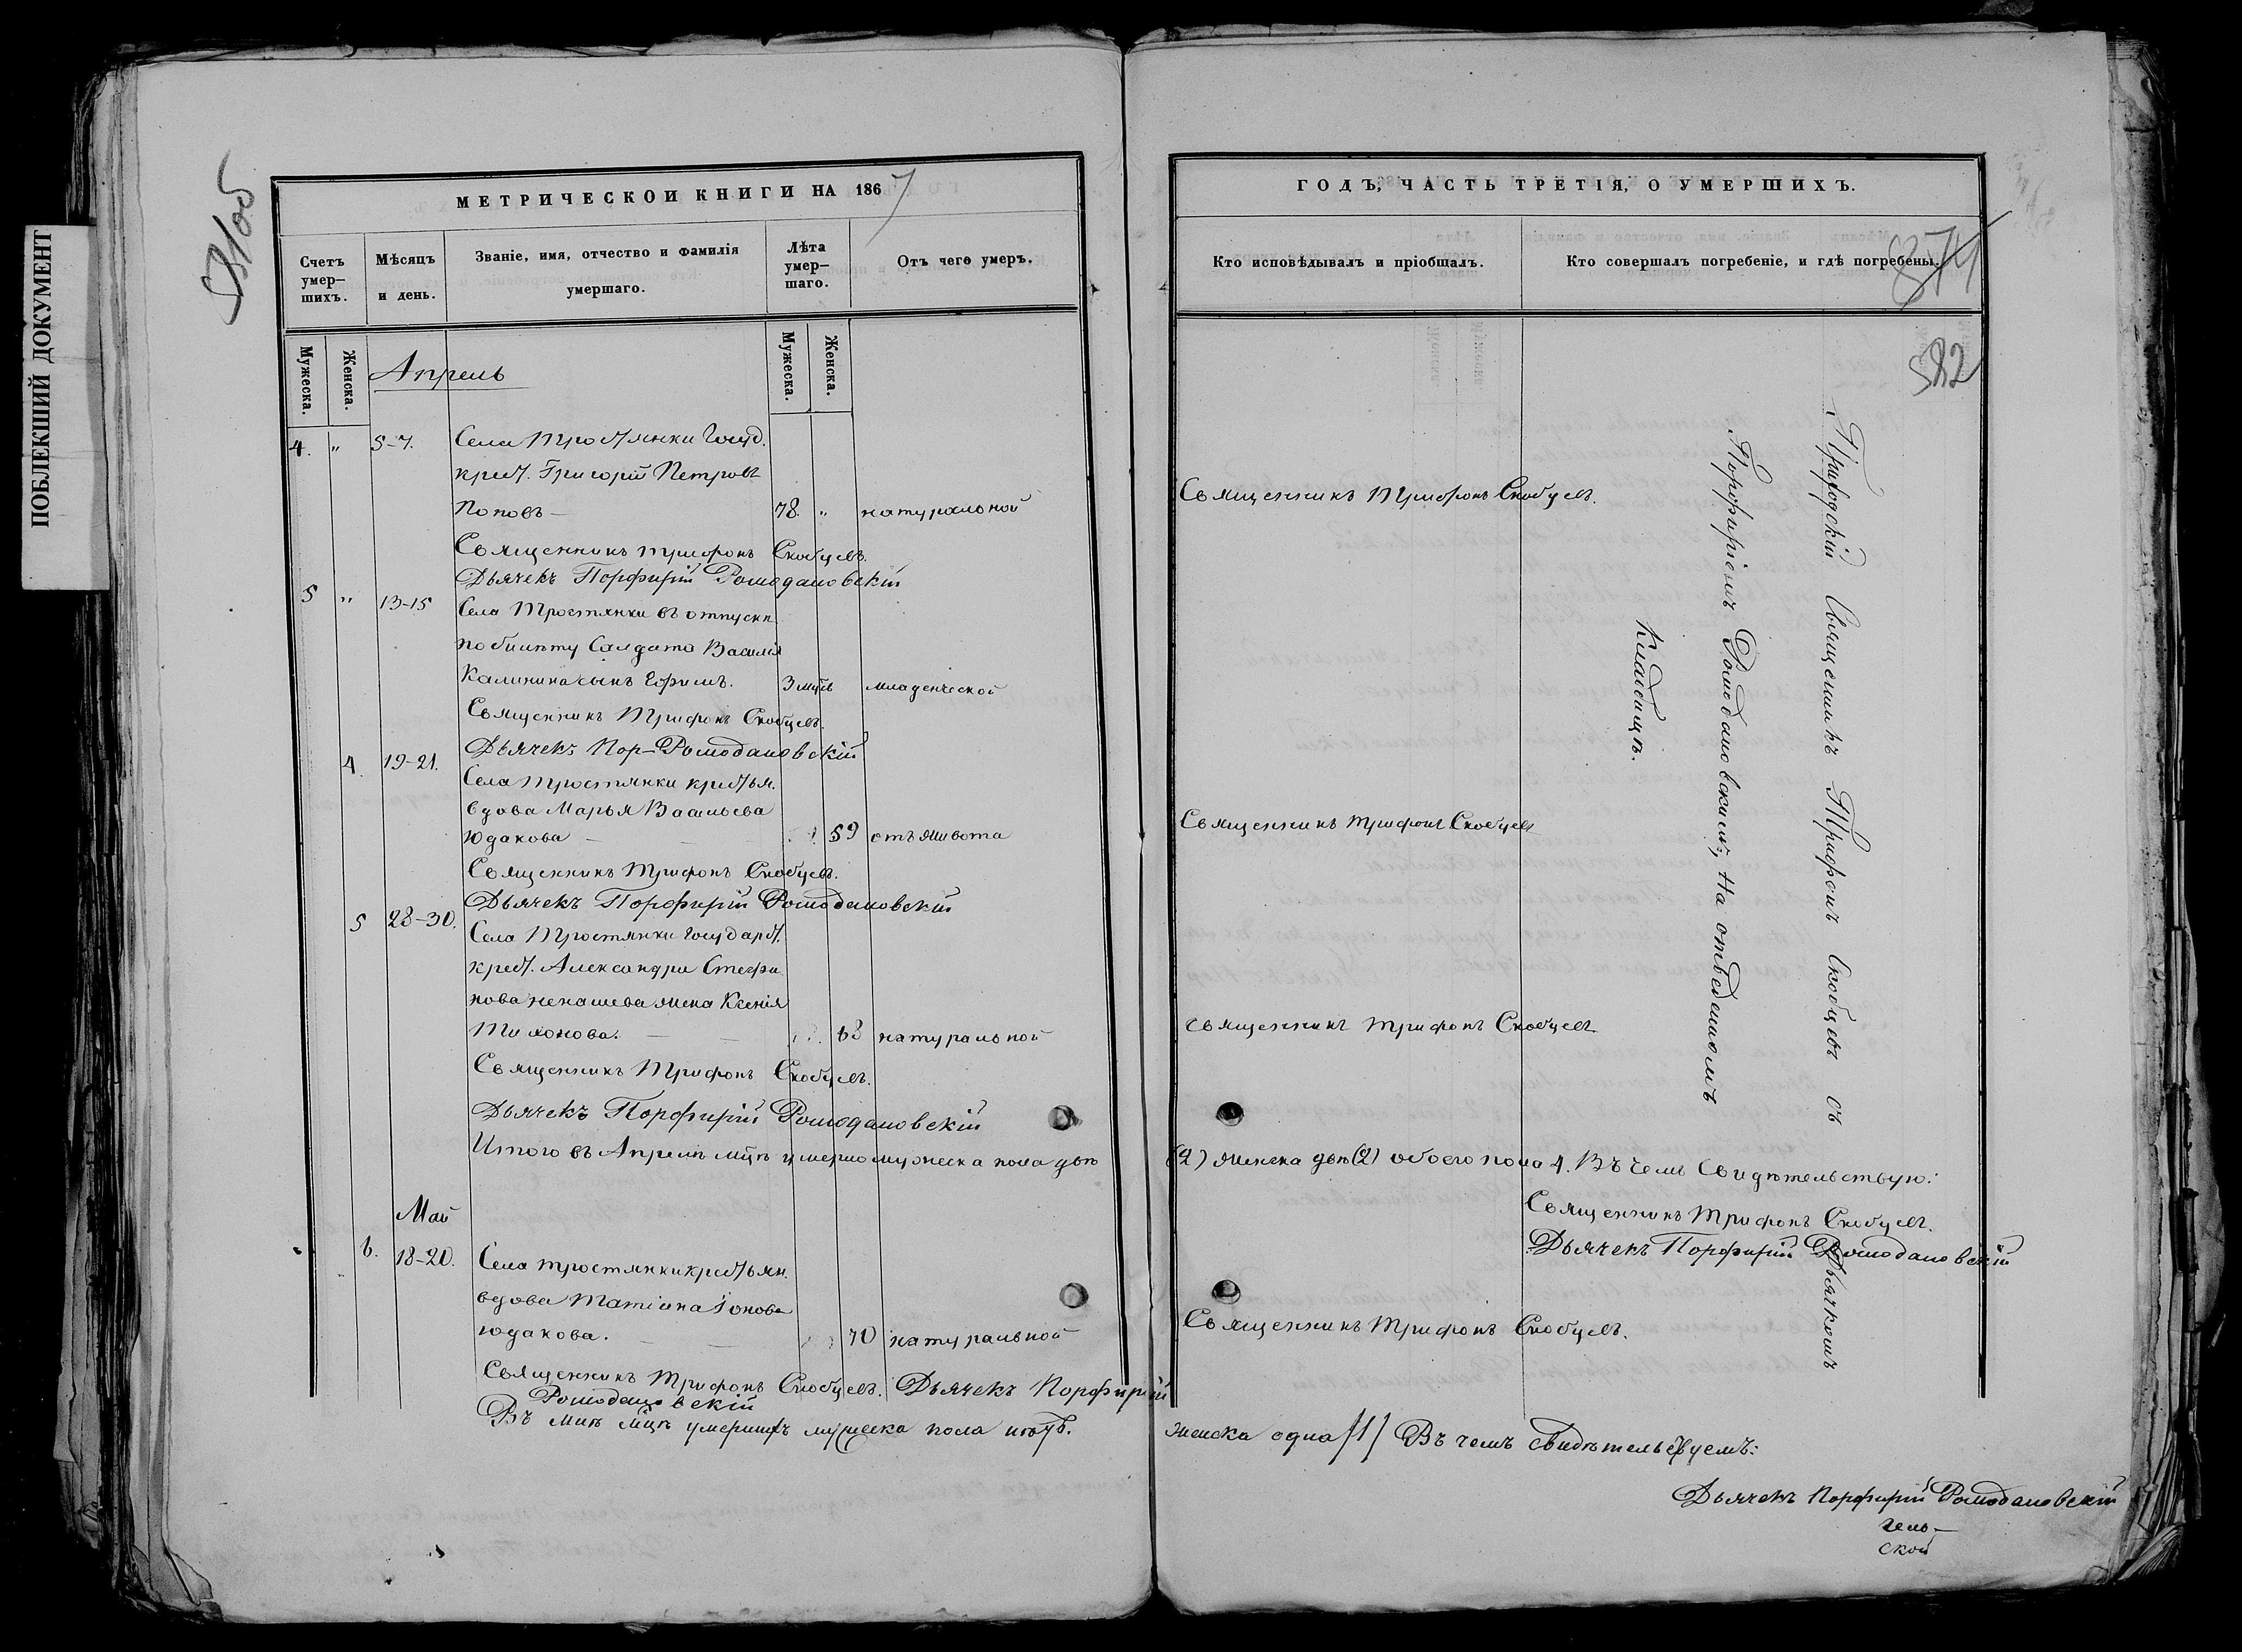 ПОБЛЕКШИЙ ДОКУМЕНТ
МЕТРИЧЕСКОЙ КНИГИ НА 1867
Счетъ умер-шихъ.
Мѣсяцъ и день.
Званіе, имя, отчество и фамилія умершаго.
Лѣта умер-шаго.
Отъ чего умеръ.
Мужеска.
Женска.
Мужеска.
Женска.
Апрель
4. " 5-7. Села Тростянки Госуд.
крест. Григорій Петровъ
Поповъ — 78. " натуральной
Священникъ Трифонъ Скобцевъ.
Дьячекъ Порфирій Ромодановскій
5 " 13-15 Села Тростянки въ отпуску
по билету Салдата Василія
Калинина сынъ Ефимъ. 3 мцъ младенческой
Священникъ Трифонъ Скобцевъ.
Дьячекъ Пор-Ромодановскій
4. 19-21. Села Тростянки крестья.
вдова Марья Васильева
Юдакова — 59 отъ живота
Священникъ Трифонъ Скобцевъ.
Дьячекъ Порфирій Ромодановскій
5 28-30. Села Тростянки Государст.
крест. Александра Стефа
нова Ненашева жена Ксенія
Тихонова. — 68 натуральной
Священникъ Трифонъ Скобцевъ.
Дьячекъ Порфирій Ромодановскій
Итого въ Апрелѣ мцѣ умерло мужеска пола два
Май
6. 18-20. Села Тростянки крестьян.
вдова Татіана Іонова
Юдакова. — 70 натуральной
Священникъ Трифонъ Скобцевъ. Дьячекъ Порфирій
Ромодановскій
Въ Маѣ мцѣ умершихъ мужеска пола нѣтъ.
ГОДЪ, ЧАСТЬ ТРЕТІЯ, О УМЕРШИХЪ.
Кто исповѣдывалъ и пріобщалъ.
Кто совершалъ погребеніе, и гдѣ погребены.
874
582
Священникъ Трифонъ Скобцевъ.
Священникъ Трифонъ Скобцевъ
Священникъ Трифонъ Скобцевъ
Приходскій Священникъ Трифонъ Скобцевъ съ Дьячкомъ
Порфиріемъ Ромодановскимъ, На отведенномъ
Кладбищѣ.
(2) женска два (2) обоего пола 4. Въ чемъ Свидѣтельствую:
Священникъ Трифонъ Скобцевъ.
Дьячекъ Порфирій Ромодановскій
Священникъ Трифонъ Скобцевъ.
женска одна /1/ Въ чемъ свидѣтельствуемъ:
Дьячекъ Порфирій Ромодановскій